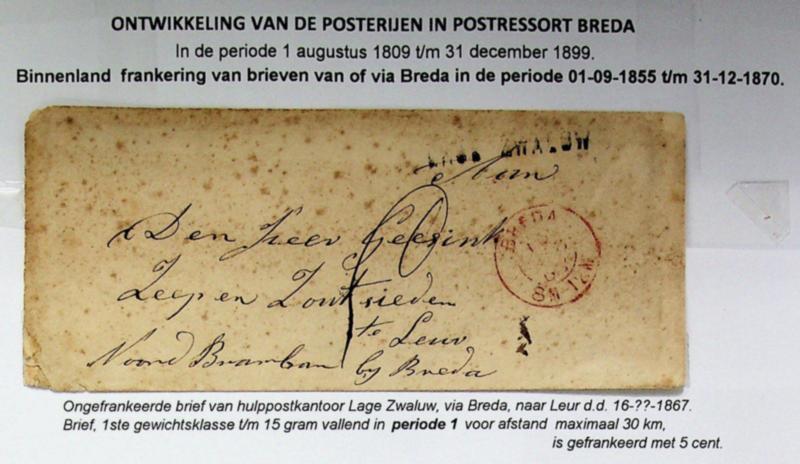 ONTWIKKELING VAN DE POSTERIJEN IN POSTRESSORT BREDA
In de periode 1 augustus 1809 t/m 31 december 1899.
Binnenland frankering van brieven van of via Breda in de periode 01-09-1855 t/m 31-12-1870.
ZWALUW
Aan
Den Heer Geesink
BREDA
8M-12M
Zeep en Zoutsieden
te Leur
Noord Bramban by Breda
Ongefrankeerde brief van hulppostkantoor Lage Zwaluw, via Breda, naar Leur d.d. 16-??-1867.
Brief, 1ste gewichtsklasse t/m 15 gram vallend in periode 1 voor afstand maximaal 30 km,
is gefrankeerd met 5 cent.